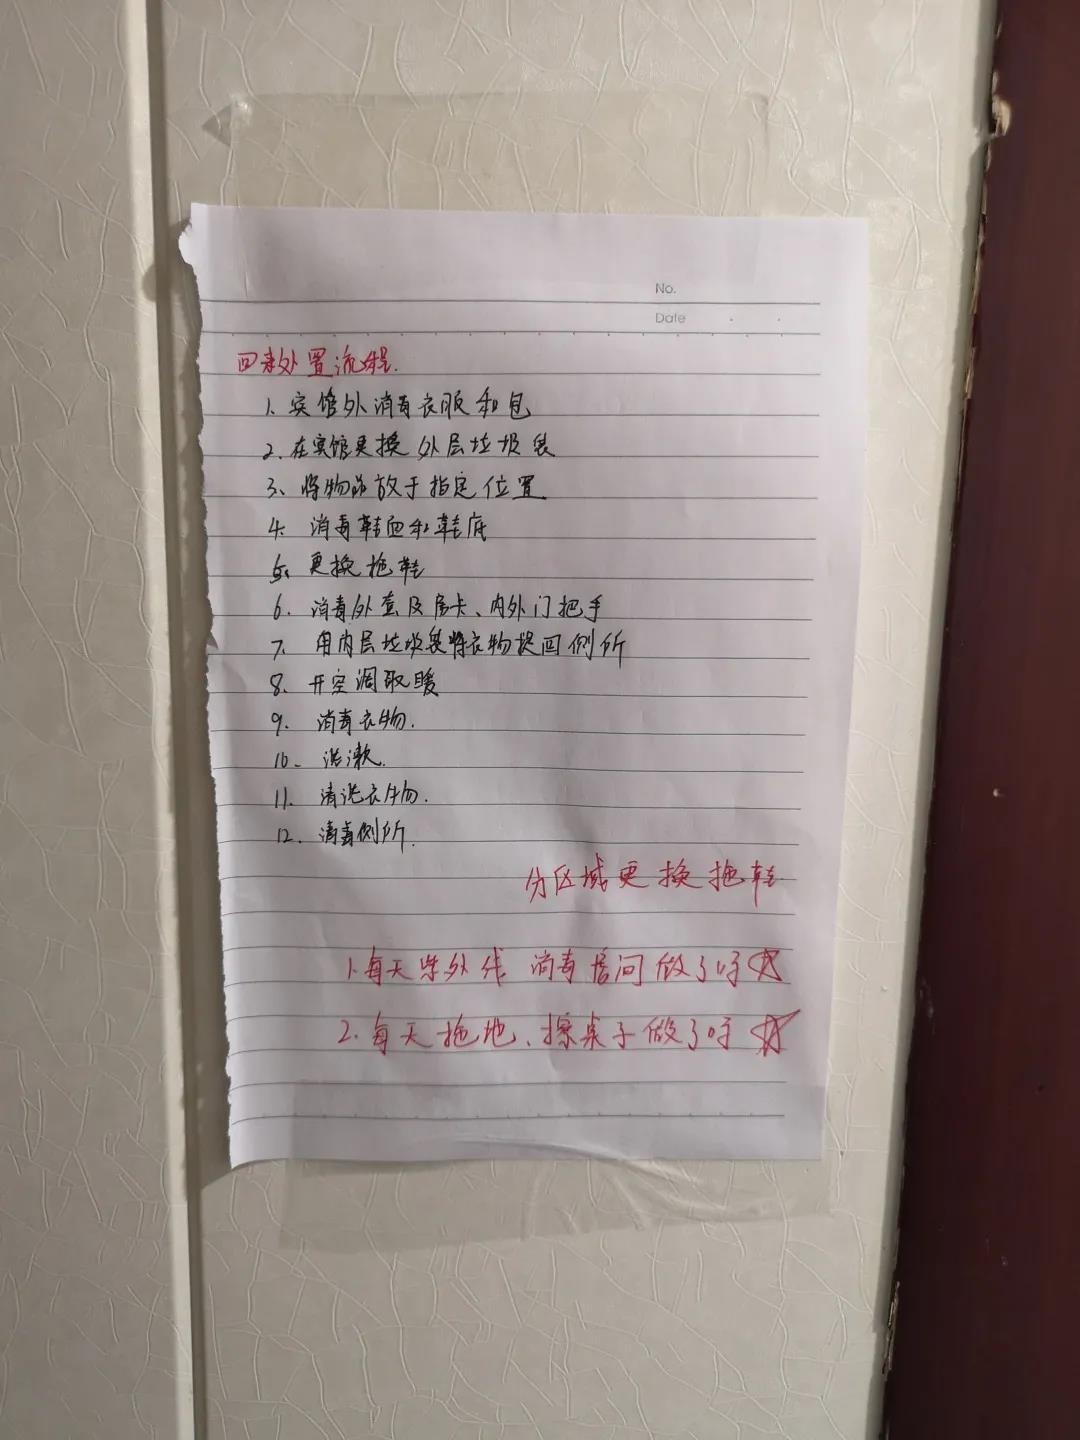 No.
Date
回来处置流程.
1、宾馆外消毒衣服和包
2、在宾馆更换外层垃圾袋
3、将物品放于指定位置
4、消毒鞋面和鞋底
5、更换拖鞋
6、消毒外套及房卡、内外门把手
7、用内层垃圾袋将衣物提回侧所
8、开空调取暖
9、消毒衣物.
10、洗漱.
11、清洗衣物.
12、消毒侧所.
分区域更换拖鞋
1、每天紫外线 消毒房间做了吗☆
2、每天拖地、擦桌子做了吗☆